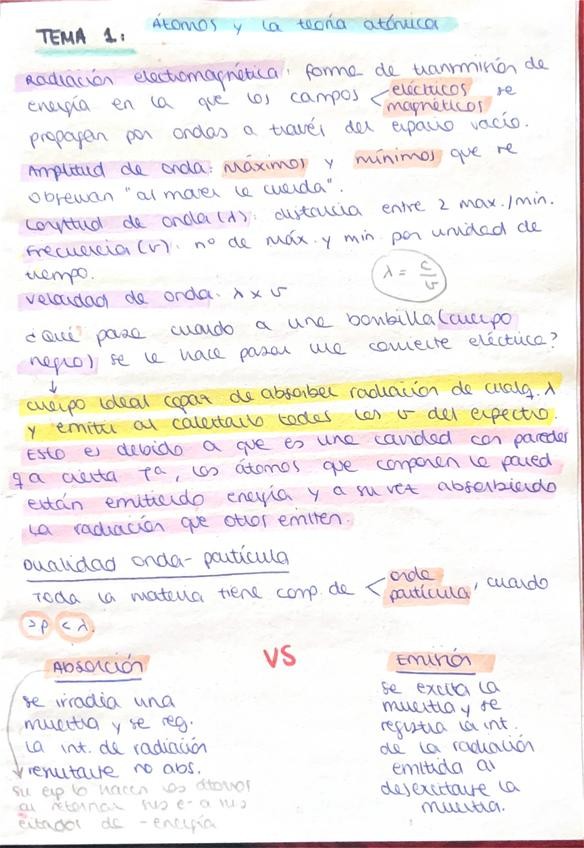 TEMA 1: Átomos y la teoría atómica
Radiación electromagnética: forma de transmisión de
energía en la que los campos < eléctricos magnéticos se
propagan por ondas a través del espacio vacío.
Amplitud de onda: máximos y mínimos que se
observan "al mover la cuerda".
Longitud de onda (λ): distancia entre 2 max./min.
Frecuencia (ν): nº de máx. y min. por unidad de
tiempo.
λ = c/ν
Velocidad de onda: λ x ν
¿Qué pasa cuando a una bombilla (cuerpo
negro) se le hace pasar una corriente eléctrica?
↓
cuerpo ideal capaz de absorber radiación de cualq. λ
y emitir al calentarlo todas las ν del espectro.
Esto es debido a que es una cavidad con paredes
q a cierta Tª, los átomos que componen la pared
están emitiendo energía y a su vez absorbiendo
la radiación que otros emiten.
Dualidad onda-partícula
Toda la materia tiene comp. de < onda partícula, cuando
>p <λ.
Absorción VS Emisión
se irradia una
muestra y se reg.
la int. de radiación
resultante no abs.
su esp lo hacen los átomos
al retornar sus e- a sus
estados de - energía
se excita la
muestra y se
registra la int.
de la radiación
emitida al
desexcitarse la
muestra.